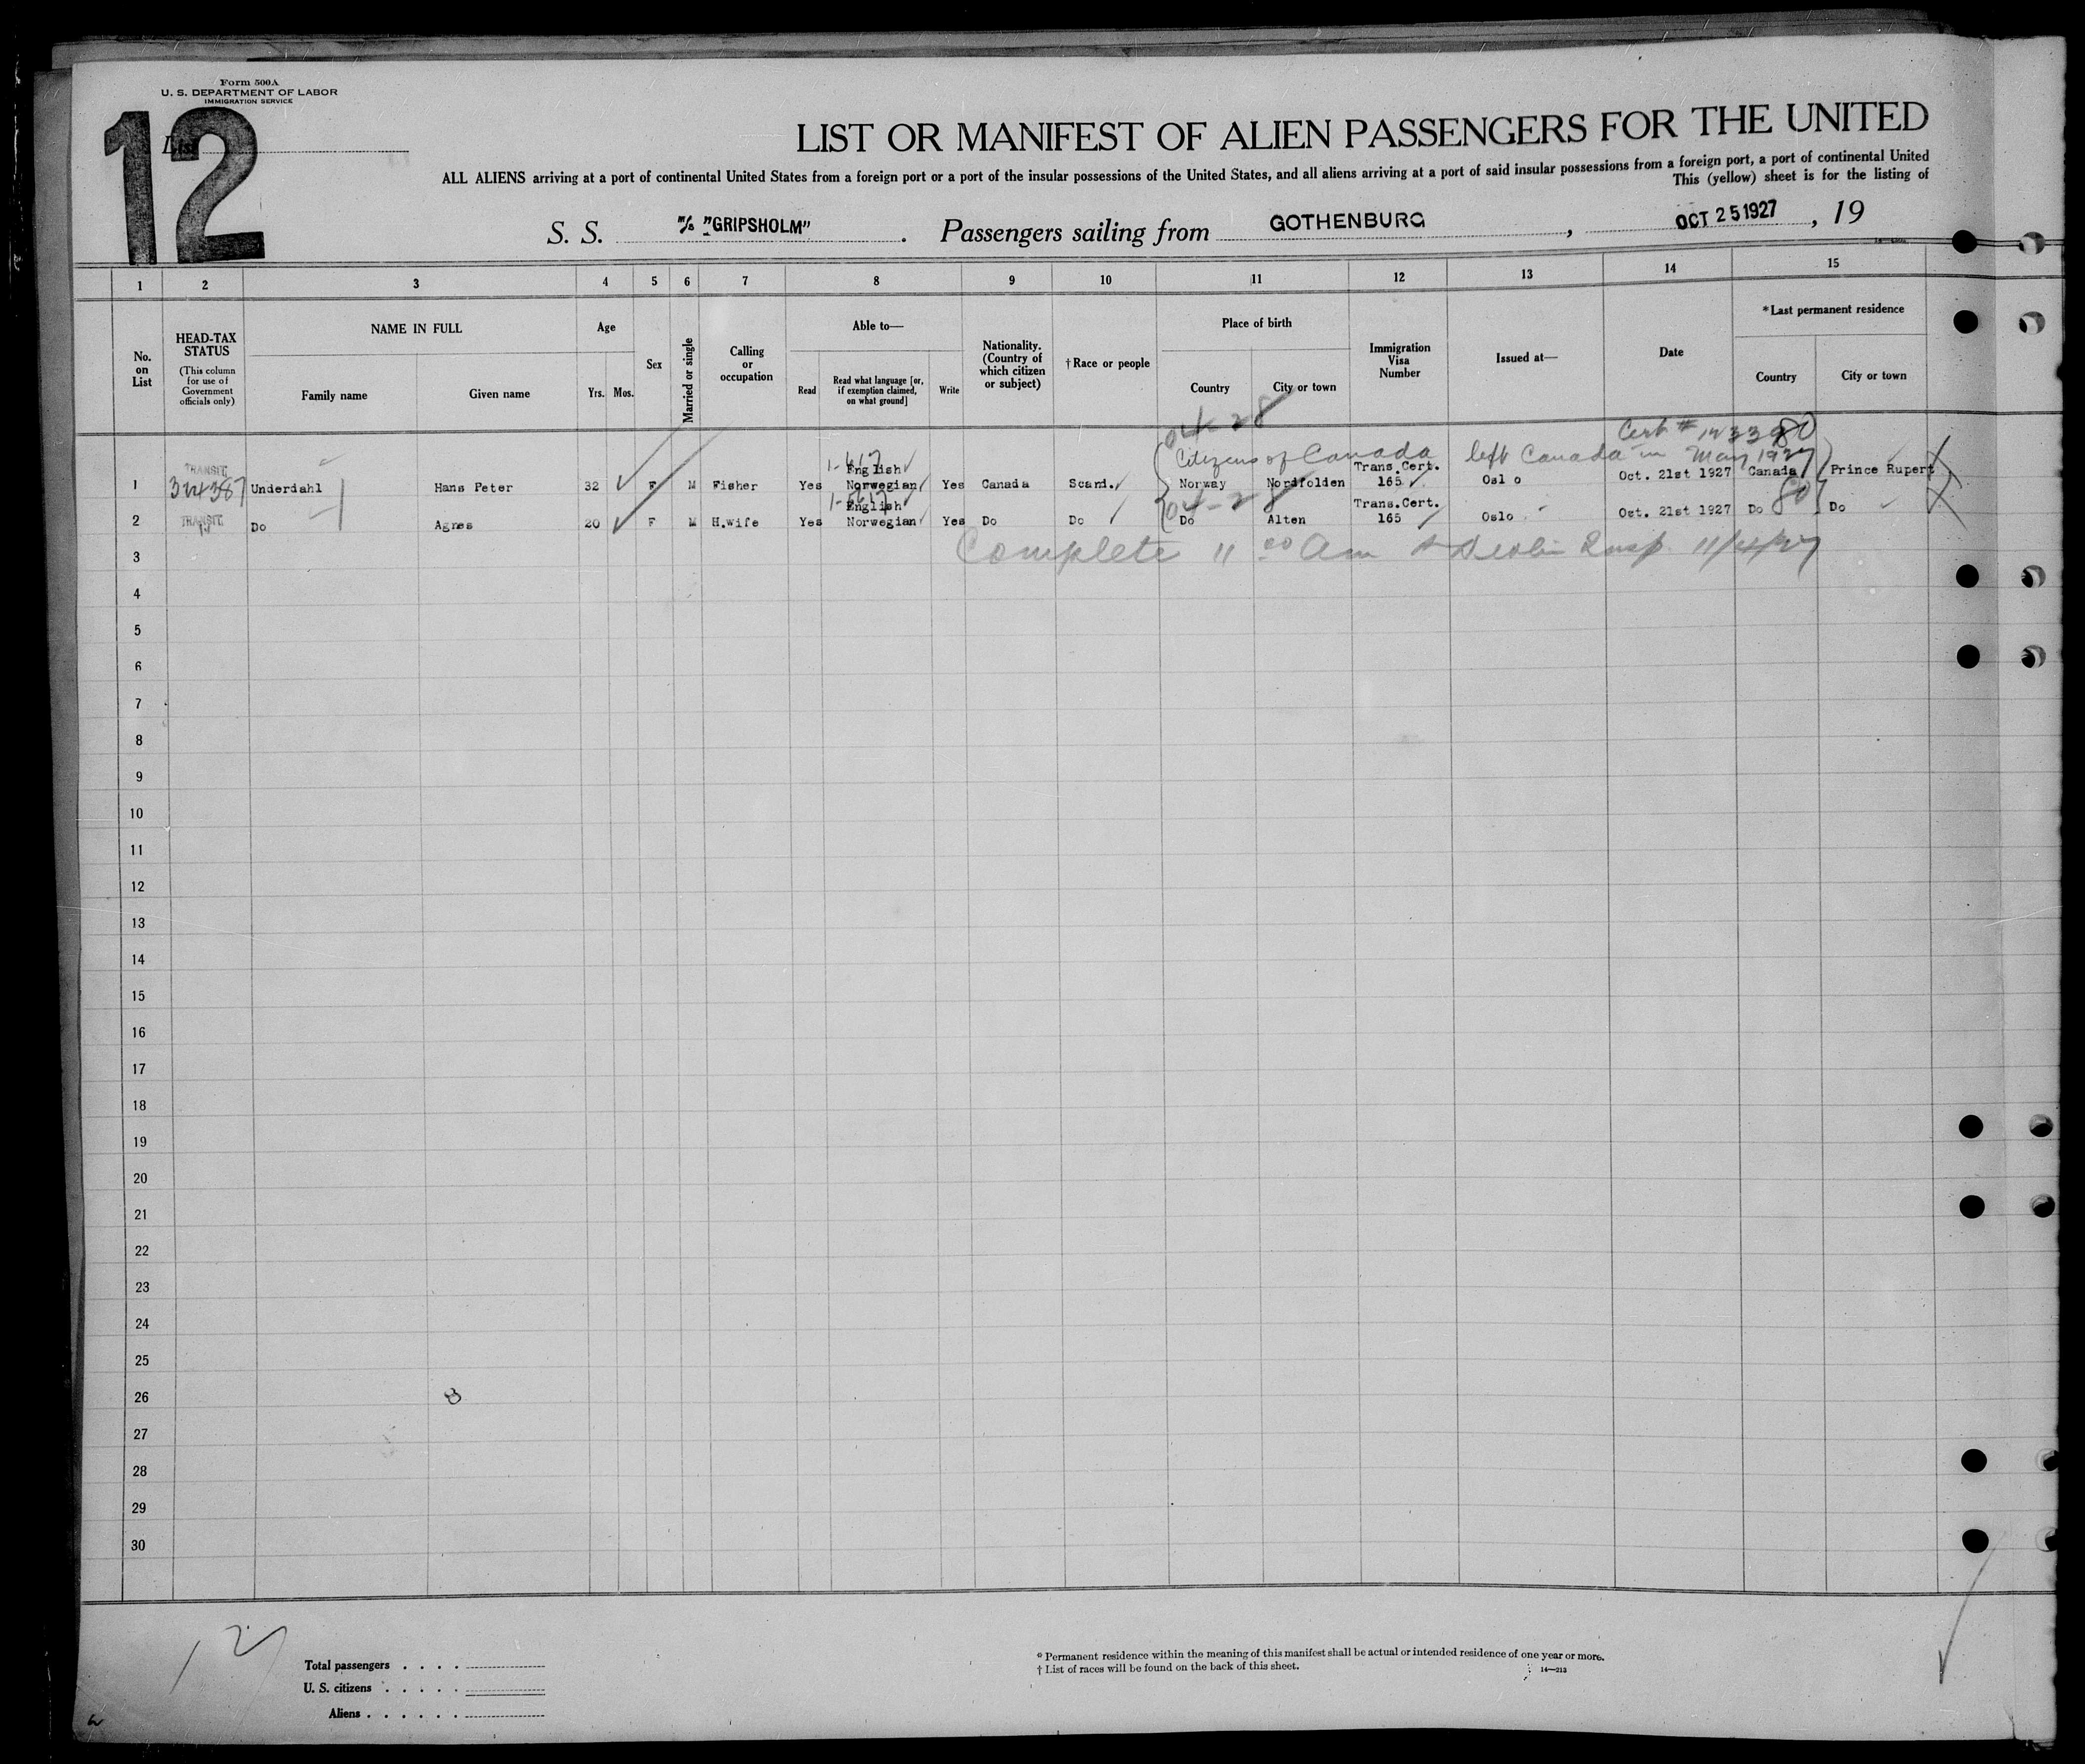 Form 500A
U. S. DEPARTMENT OF LABOR
IMMIGRATION SERVICE
12
List
LIST OR MANIFEST OF ALIEN PASSENGERS FOR THE UNITED
ALL ALIENS arriving at a port of continental United States from a foreign port or a port of the insular possessions of the United States, and all aliens arriving at a port of said insular possessions from a foreign port, a port of continental United
This (yellow) sheet is for the listing of
S. S. M/S "GRIPSHOLM" . Passengers sailing from GOTHENBURG , OCT 25 1927 , 19
1 2 3 4 5 6 7 8 9 10 11 12 13 14 15
No. on List
HEAD-TAX STATUS (This column for use of Government officials only)
NAME IN FULL
Family name Given name
Age
Yrs. Mos.
Sex
Married or single
Calling or occupation
Able to—
Read Read what language [or, if exemption claimed, on what ground] Write
Nationality. (Country of which citizen or subject)
†Race or people
Place of birth
Country City or town
Immigration Visa Number
Issued at—
Date
*Last permanent residence
Country City or town
04-28
Cert #
Citizens of Canada left Canada in May 1927
1 TRANSIT Underdahl Hans Peter 32 F M Fisher Yes English Norwegian Yes Canada Scand. Norway Nordfolden Trans.Cert. 165 Oslo Oct. 21st 1927 Canada Prince Rupert
04-28
80
2 TRANSIT Do Agnes 20 F M H.wife Yes English Norwegian Yes Do Do Do Alten Trans.Cert. 165 Oslo Oct. 21st 1927 Do Do
3 Complete 11 00 Am Insp. 11/4/27
4
5
6
7
8
9
10
11
12
13
14
15
16
17
18
19
20
21
22
23
24
25
26
27
28
29
30
Total passengers . . . .
U. S. citizens . . . . .
Aliens . . . . . .
* Permanent residence within the meaning of this manifest shall be actual or intended residence of one year or more.
† List of races will be found on the back of this sheet.
14—213